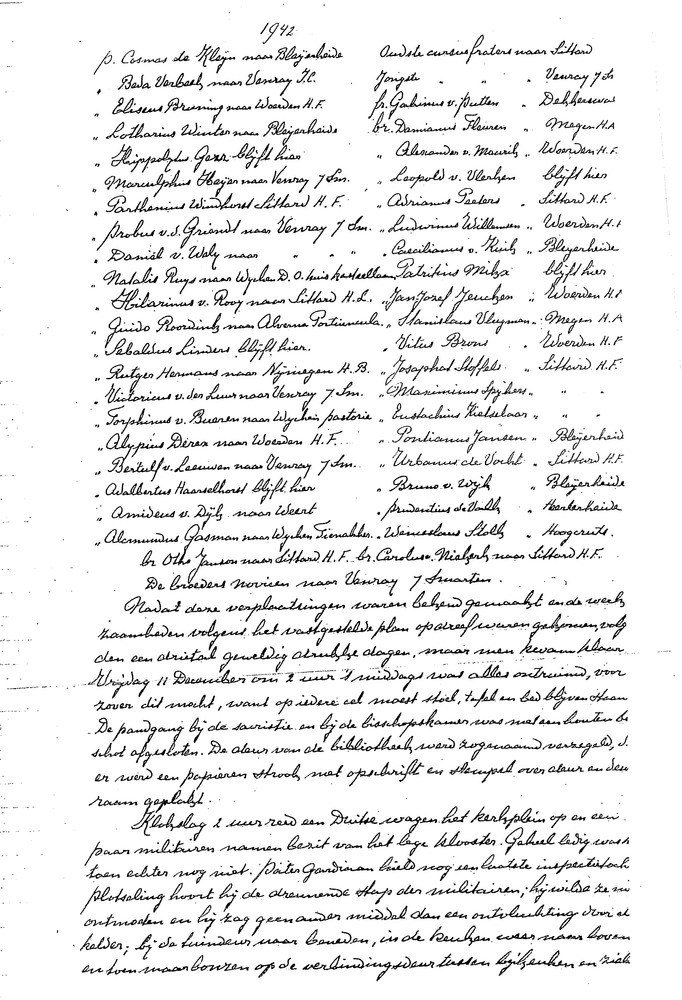 1942
p. Cosmas de Kleyn naar Bleyerheide Oudste cursusfraters naar Sittard
" Beda Verbeek naar Venray J.C. Jongste " " " Venray 7 Sm
" Eliseus Bruning naar Woerden H.F. fr. Gabinus v. Putten " Dekkerswa
" Lotharius Winter naar Bleyerheide br. Damianus Fleuren " Megen H.A
" Hippolytus blijft hier " Alexander v. Maurik " Woerden H.F.
" Marculphus Heijer naar Venray 7 Sm. " Leopold v. blijft hier
" Parthenius Windhorst Sittard H.F. " Adrianus Peeters " Sittard H.F.
" Probus v.d. Griendt naar Venray 7 Sm. " Ludovicus Willemsen " Woerden H.F
" Daniël v. Wely naar " " " " Caecilianus v. Kuik " Bleyerheide
" Natalis Ruys naar Wychen D.O. huis kasteellaan " Patritius blijft hier
" Hilarinus v. Rooy naar Sittard H.L. " Jan Jozef " Woerden H.F
" Guido Roordink naar Alverna Portiuncula " Stanislaus Vlugman " Megen H.A
" Sebaldus Linders blijft hier. " Vitus Brons " Woerden H.F
" Rutger Hermans naar Nijmegen H.B. " Josaphat Stoffels " Sittard H.F.
" Victorius v. der Leur naar Venray 7 Sm. " Maximinus Spykers " " "
" Torphinus v. Bueren naar Wychen pastorie " Eustachius " " "
" Alypius Derex naar Woerden H.F. " Pontianus Jansen " Bleyerheid
" Bertulf v. Leeuwen naar Venray 7 Sm. " Urbanus de Vocht " Sittard H.F.
" Adalbertus Haarselhorst blijft hier " Bruno v. Wyk " Bleyerheide
" Amideus v. Dijk naar Weert " Prudentius de " Heerlerheide
" Alemundus Gasman naar Wychen Tienakker " Wenceslaus " Hoogcruts.
br. Otho Janson naar Sittard H.F. br. Carolus v. naar Sittard H.F.
De broeders novicen naar Venray 7 Smarten.
Nadat deze verplaatsingen waren bekend gemaakt en de werk
zaamheden volgens het vastgestelde plan op dreef waren gekomen, volg
den een drietal geweldig drukke dagen, maar men kwam klaar
Vrijdag 11 December om 2 uur 's middags was alles ontruimd, voor
zover dit mocht, want op iedere cel moest stoel, tafel en bed blijven staan
De pandgang bij de sacristie en bij de bisschopskamer was met een houten be
schot afgesloten. De deur van de bibliotheek werd zogenaamd verzegeld, d.
er werd een papieren strook met opschrift en stempel over deur en deur
raam geplakt.
Klokslag 2 uur reed een Duitse wagen het kerkplein op en een
paar militairen namen bezit van het lege klooster. Geheel ledig was h
toen echter nog niet. Pater Gardiaan hield nog een laatste inspectietoch
plotseling hoort hij de dreunende stap der militairen; hij wilde ze ni
ontmoeten en hij zag geen ander middel dan een ontvluchting door d
kelder; bij de tuindeur naar beneden, in de keuken weer naar boven
en toen maar bonzen op de verbindingsdeur tussen bijkeuken en ziek